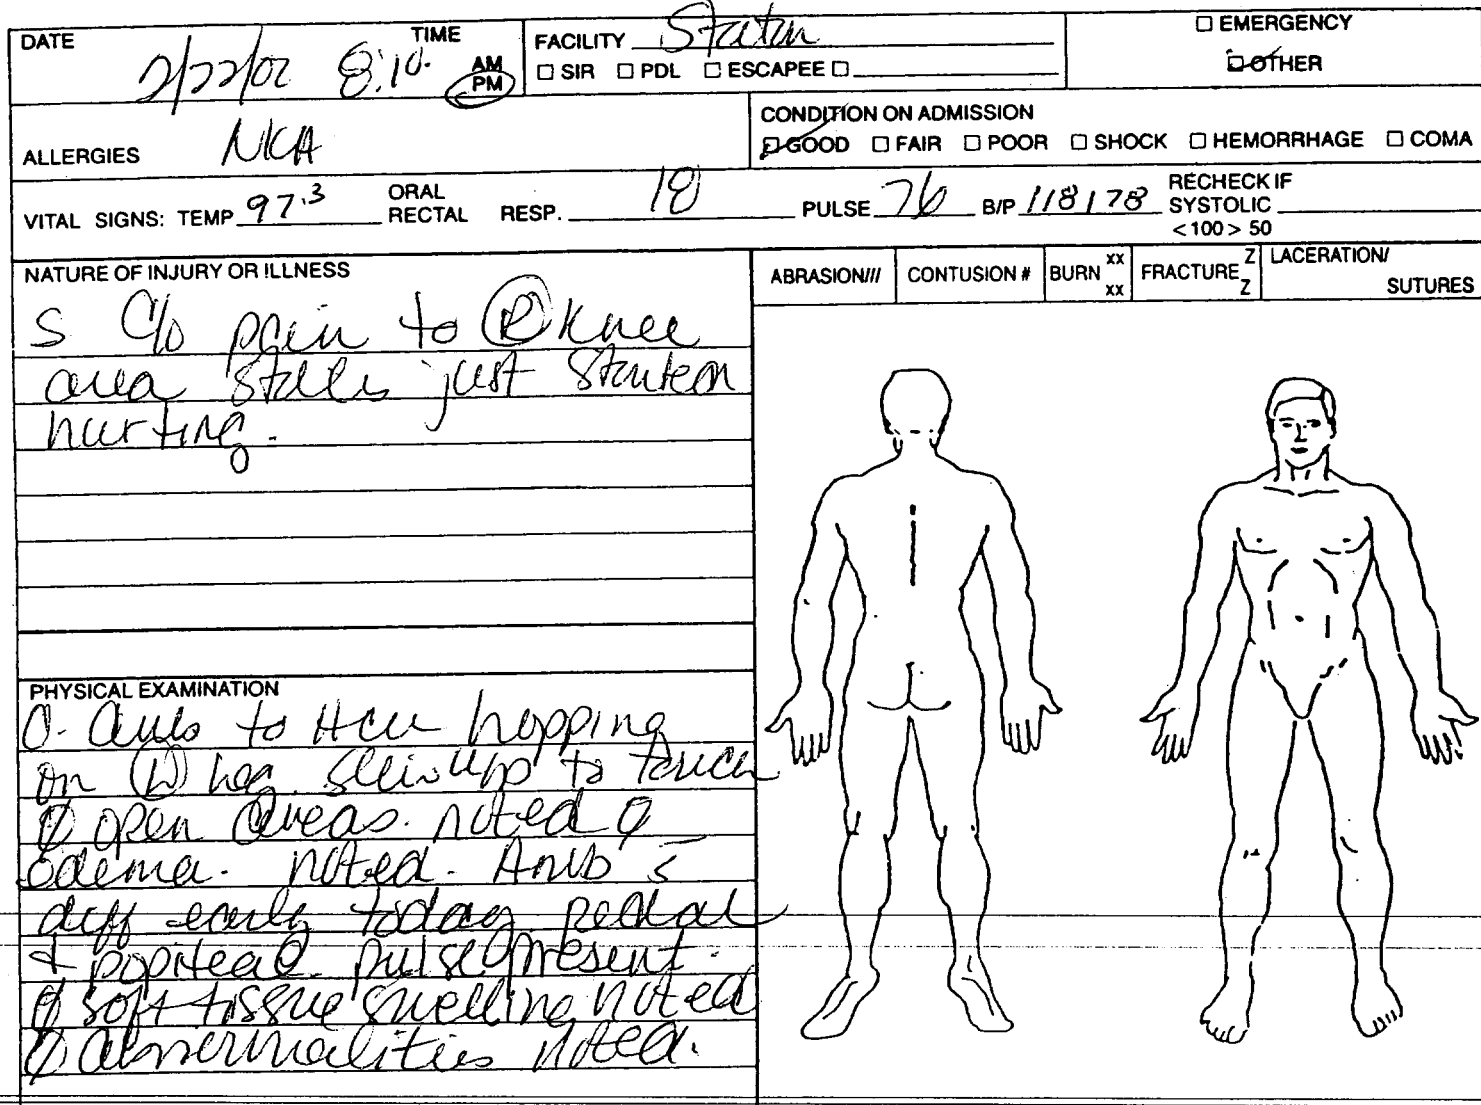 DATE 2/22/02 TIME 8:10 AM PM
FACILITY Staton
☐ SIR ☐ PDL ☐ ESCAPEE ☐
☐ EMERGENCY
☑ OTHER
ALLERGIES NKA
CONDITION ON ADMISSION
☑ GOOD ☐ FAIR ☐ POOR ☐ SHOCK ☐ HEMORRHAGE ☐ COMA
VITAL SIGNS: TEMP 97.3 ORAL RECTAL RESP. 18 PULSE 76 B/P 118/78 RECHECK IF SYSTOLIC <100> 50
NATURE OF INJURY OR ILLNESS
S c/o pain to Ⓡ knee
area states just
hurting.
ABRASION/// CONTUSION # BURN xx xx FRACTURE Z Z LACERATION/ SUTURES
PHYSICAL EXAMINATION
O- to HCU hopping
on leg. to touch
Ø open areas. noted Ø
edema. noted. Amb s̄
diff early today pedal
+ popiteal pulse present.
Ø soft tissue swelling noted
Ø abnormalities noted.